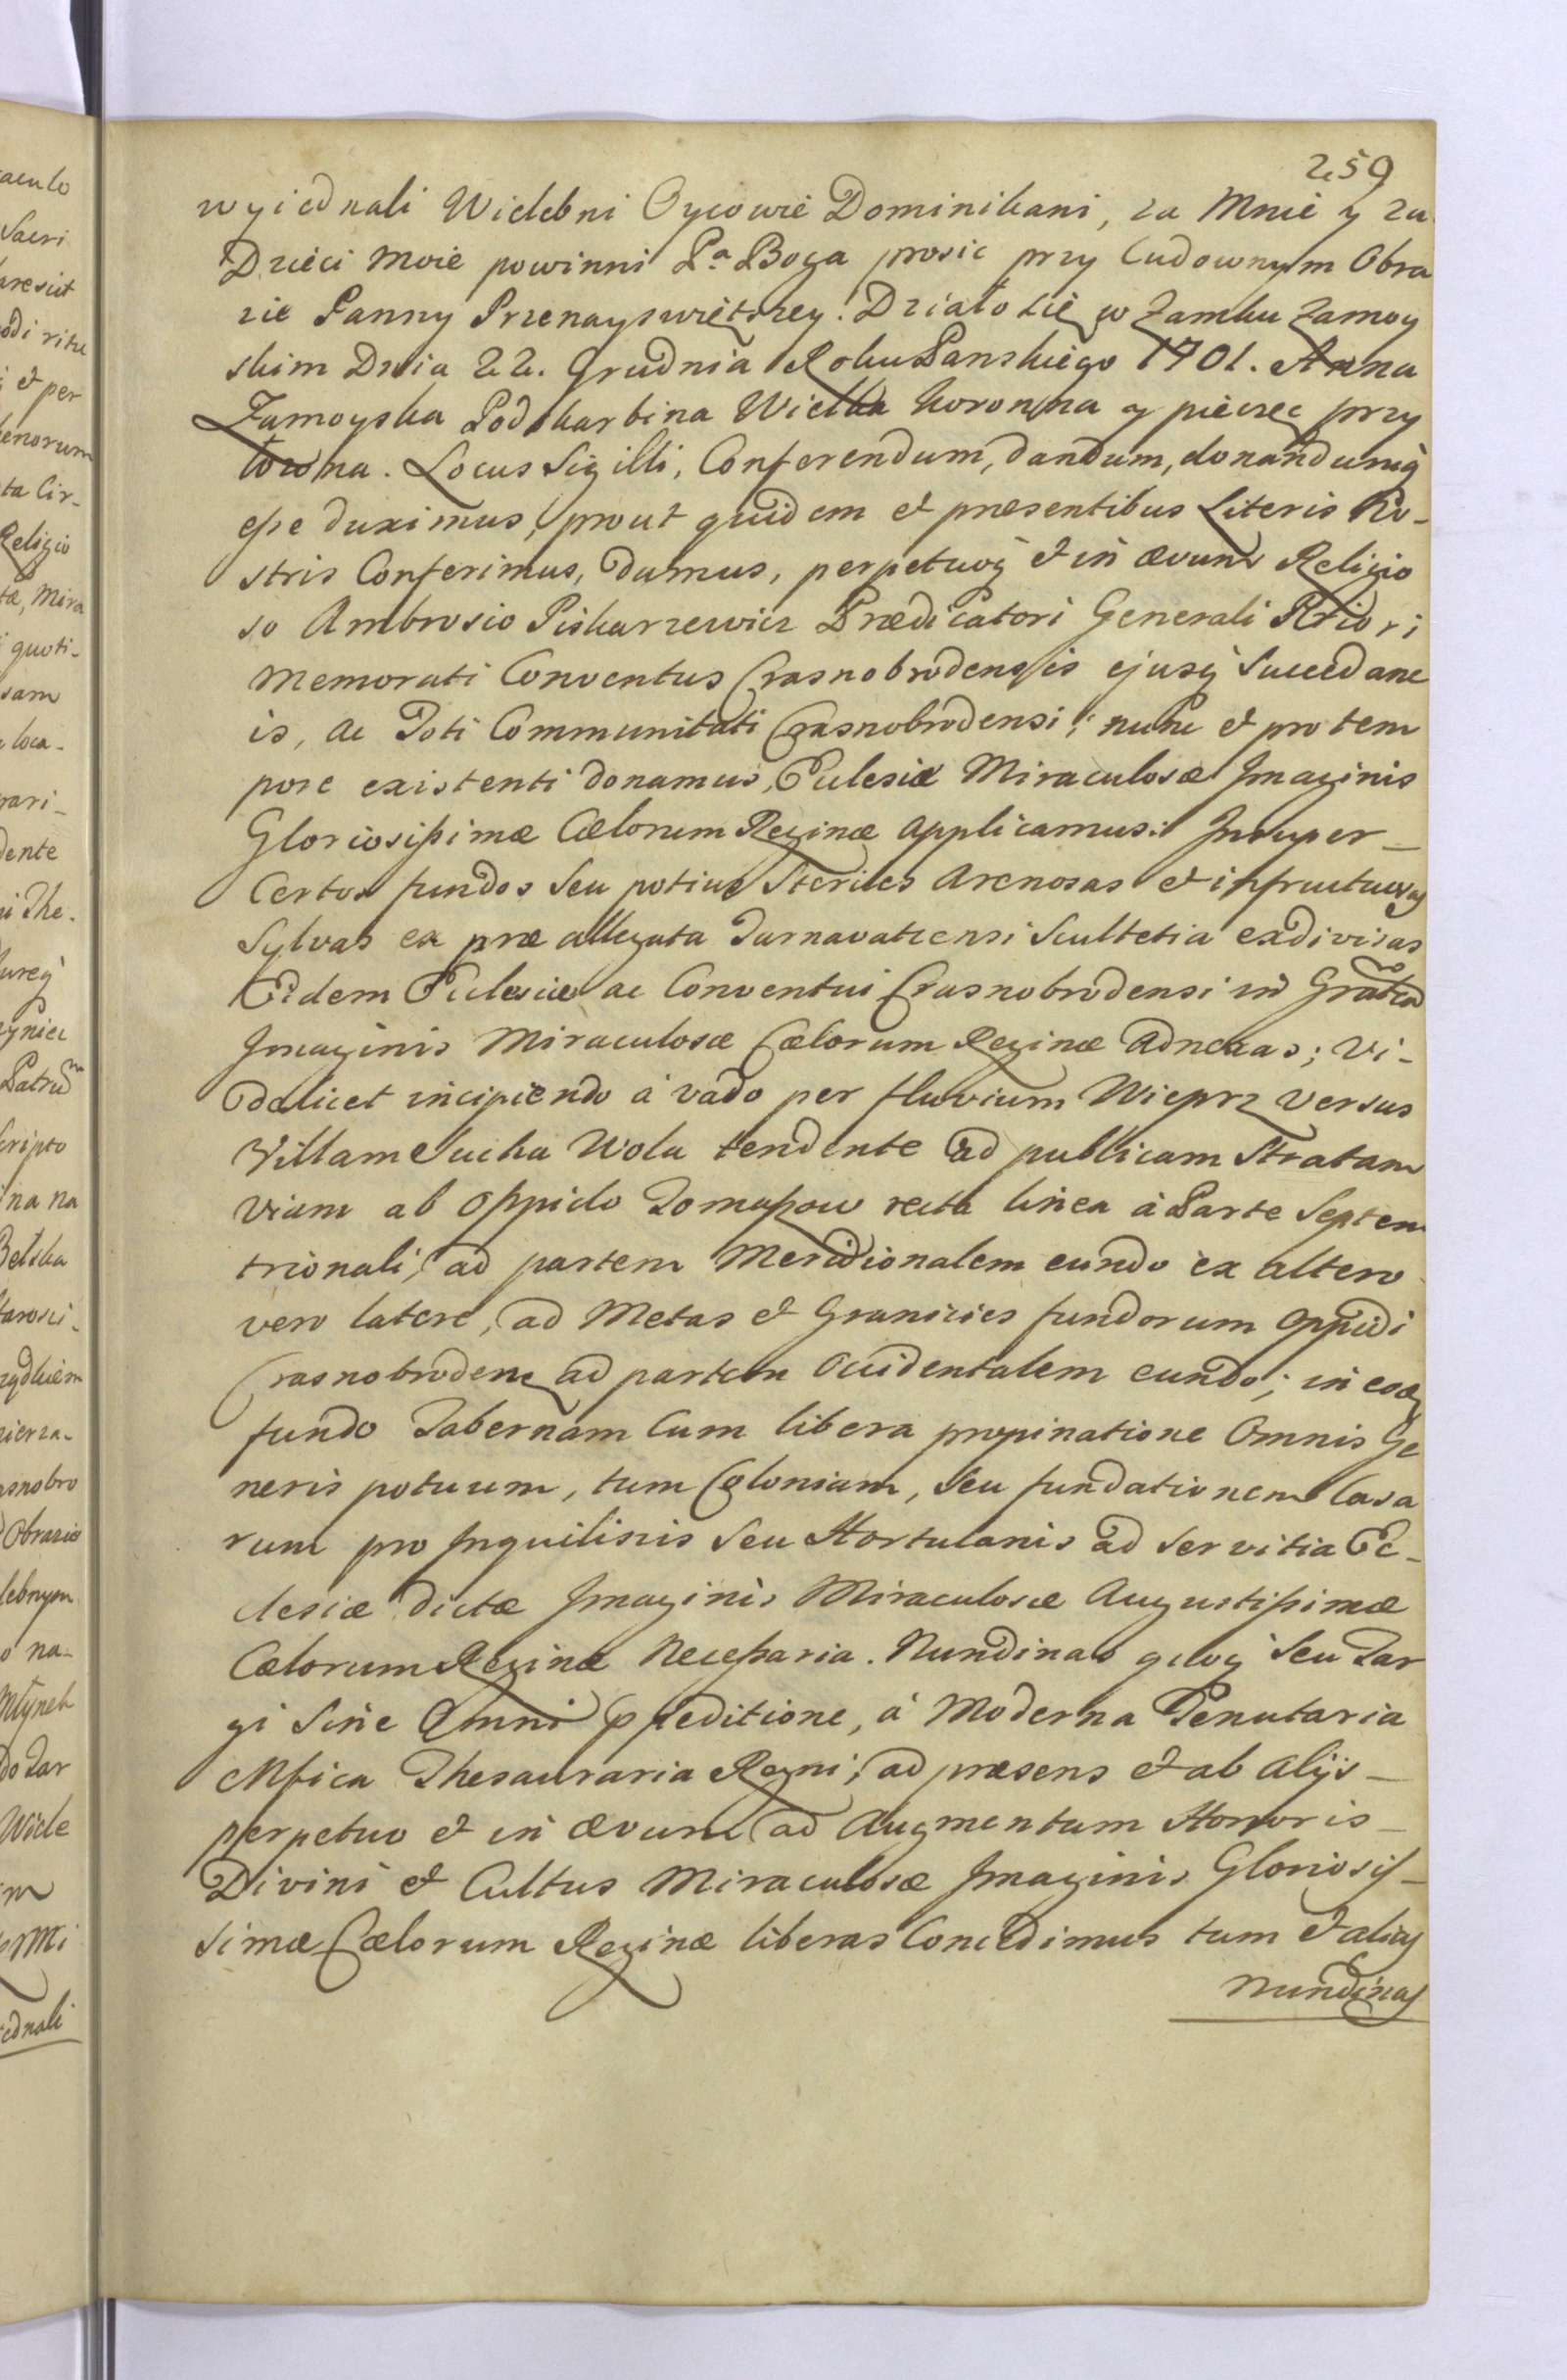 259
wyiednali Wielebni Oycowie Dominikani, za Mnie y za
Dzieci Moie powinni Pa Boga prosic przy Cudownym Obra
zie Panny Przenayswiętszey. Działo się w Zamku Zamoy
skim Dnia 22. Grudnia Roku Panskiego 1701. Anna
Zamoyska Podskarbina Wielka Koronna y pieczęc przy
Locus Sigilli, Conferendum, dandum, donandumq̀
eße duximus, prout quidem et præsentibus Literis No-
stris Conferimus, damus, perpetuoq̀ et in ævum Religio
so Ambrosio Piskarzewicz Prædicatori Generali Priori
Memorati Conventus Crasnobrodensis ejusq̀ Succedane
is, ac Toti Communitati Crasnobrodensi, nunc et pro tem
pore existenti donamus, Eclesiæ Miraculosæ Imaginis
Gloriosißimæ Cælorum Reginæ Applicamus: Insuper-
Certos fundos Seu potius Steriles Arenosas et infructuosas
Sylvas ex præ allegata Tarnavatcensi Scultetia exdivisas
Eidem Eclesiæ ac Conventui Crasnobrodensi in Gratia
Imaginis Miraculosæ Cælorum Reginæ Adnexas; Vi-
delicet incipiendo à vado per fluvium Wieprz versus
Villam Sucha Wola tendente ad publicam Stratam
Viam ab Oppido Tomaßow recta linea à Parte Septen
trionali, ad partem Meridionalem eundo ex altero
vero latere, ad Metas et Granicies fundorum Oppidi
Crasnobroden ad partem Occidentalem eundo; in eoq
fundo Tabernam Cum libera propinatione Omnis Ge
neris potuum, tum Coloniam, Seu fundationem Casa
rum pro Inquilinis Seu Hortulanis ad Servitia Ec-
clesiæ dictæ Imaginis Miraculosæ Augustißimæ
Cælorum Reginæ Neceßaria. Nundinas Seu Tar
gi Sine Omni à Moderna Tenutaria
Mfica Thesauraria Regni, ad præsens et ab Alijs-
perpetuo et in ævum ad Augmentum Honoris-
Divini et Cultus Miraculosæ Imaginis Gloriosis-
simæ Cælorum Reginæ liberas Concedimus tum et alias
Nundinas